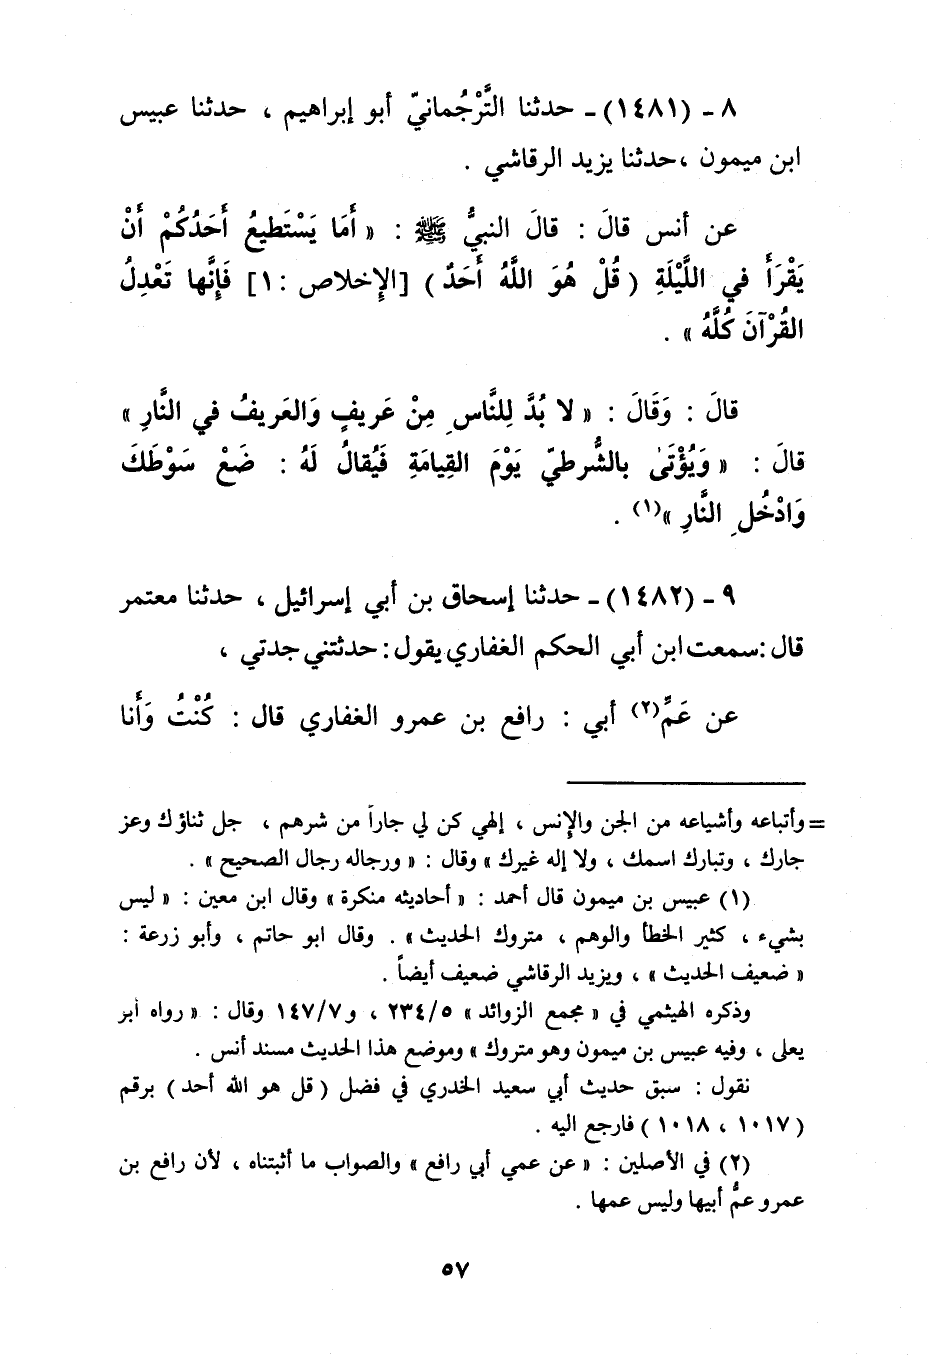 ٨ - (١٤٨١) - حدثنا التَّرْجُمانيّ أبو إبراهيم ، حدثنا عبيس
ابن ميمون ،حدثنا يزيد الرقاشي .
عن أنس قالَ : قالَ النبيُّ ﷺ : « أَمَا يَسْتَطيعُ أَحَدُكُمْ أَنْ
يَقْرَأَ في اللَّيْلَةِ ( قُلْ هُوَ اللَّهُ أَحَدٌ ) [الإِخلاص : ١] فَإِنَّها تَعْدِلُ
القُرْآنَ كُلَّهُ » .
قالَ : وَقَالَ : « لا بُدَّ لِلنَّاسِ مِنْ عَرِيفٍ وَالعَريفُ في النَّارِ »
قالَ : « وَيُؤْتَىٰ بالشُّرطيّ يَوْمَ القِيامَةِ فَيُقالُ لَهُ : ضَعْ سَوْطَكَ
وَادْخُلِ النَّارِ »(١) .
٩ - (١٤٨٢) - حدثنا إسحاق بن أبي إسرائيل ، حدثنا معتمر
قال :سمعت ابن أبي الحكم الغفاري يقول : حدثتني جدتي ،
عن عَمِّ(٢) أبي : رافع بن عمرو الغفاري قال : كُنْتُ وَأَنا
= وأتباعه وأشياعه من الجن والإنس ، إلهي كن لي جاراً من شرهم ، جل ثناؤك وعز
جارك ، وتبارك اسمك ، ولا إله غيرك » وقال : « ورجاله رجال الصحيح » .
(١) عبيس بن ميمون قال أحمد : « أحاديثه منكرة » وقال ابن معين : « ليس
بشيء ، كثير الخطأ والوهم ، متروك الحديث » . وقال ابو حاتم ، وأبو زرعة :
« ضعيف الحديث » ، ويزيد الرقاشي ضعيف أيضاً .
وذكره الهيثمي في « مجمع الزوائد » ٢٣٤/٥ ، و ١٤٧/٧ وقال : « رواه أبو
يعلى ، وفيه عبيس بن ميمون وهو متروك » وموضع هذا الحديث مسند أنس .
نقول : سبق حديث أبي سعيد الخدري في فضل ( قل هو الله أحد ) برقم
( ١٠١٧ ، ١٠١٨ ) فارجع اليه .
(٢) في الأصلين : « عن عمي أبي رافع » والصواب ما أثبتناه ، لأن رافع بن
عمرو عمُّ أبيها وليس عمها .
٥٧